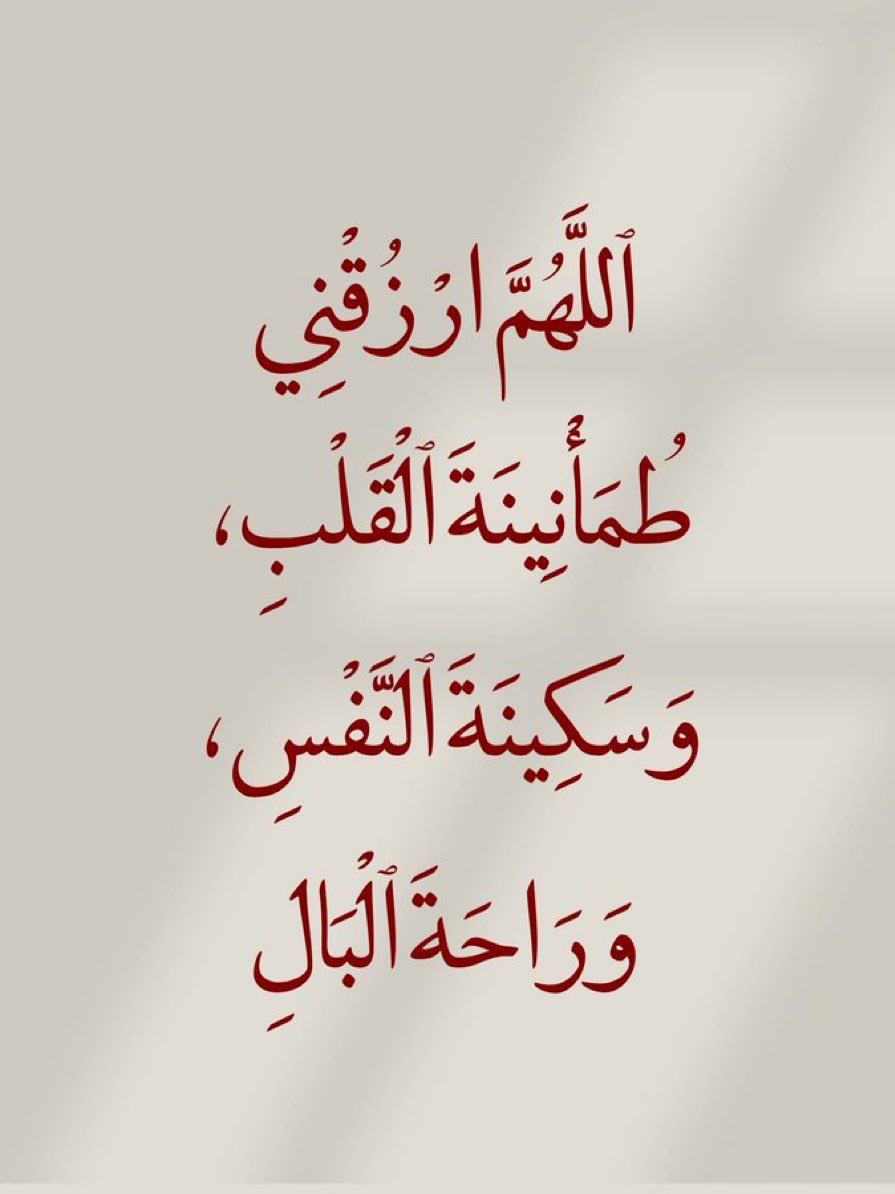 ٱللَّهُمَّ ارْزُقْنِي
طُمَأْنِينَةَ ٱلْقَلْبِ،
وَسَكِينَةَ ٱلنَّفْسِ،
وَرَاحَةَ ٱلْبَالِ